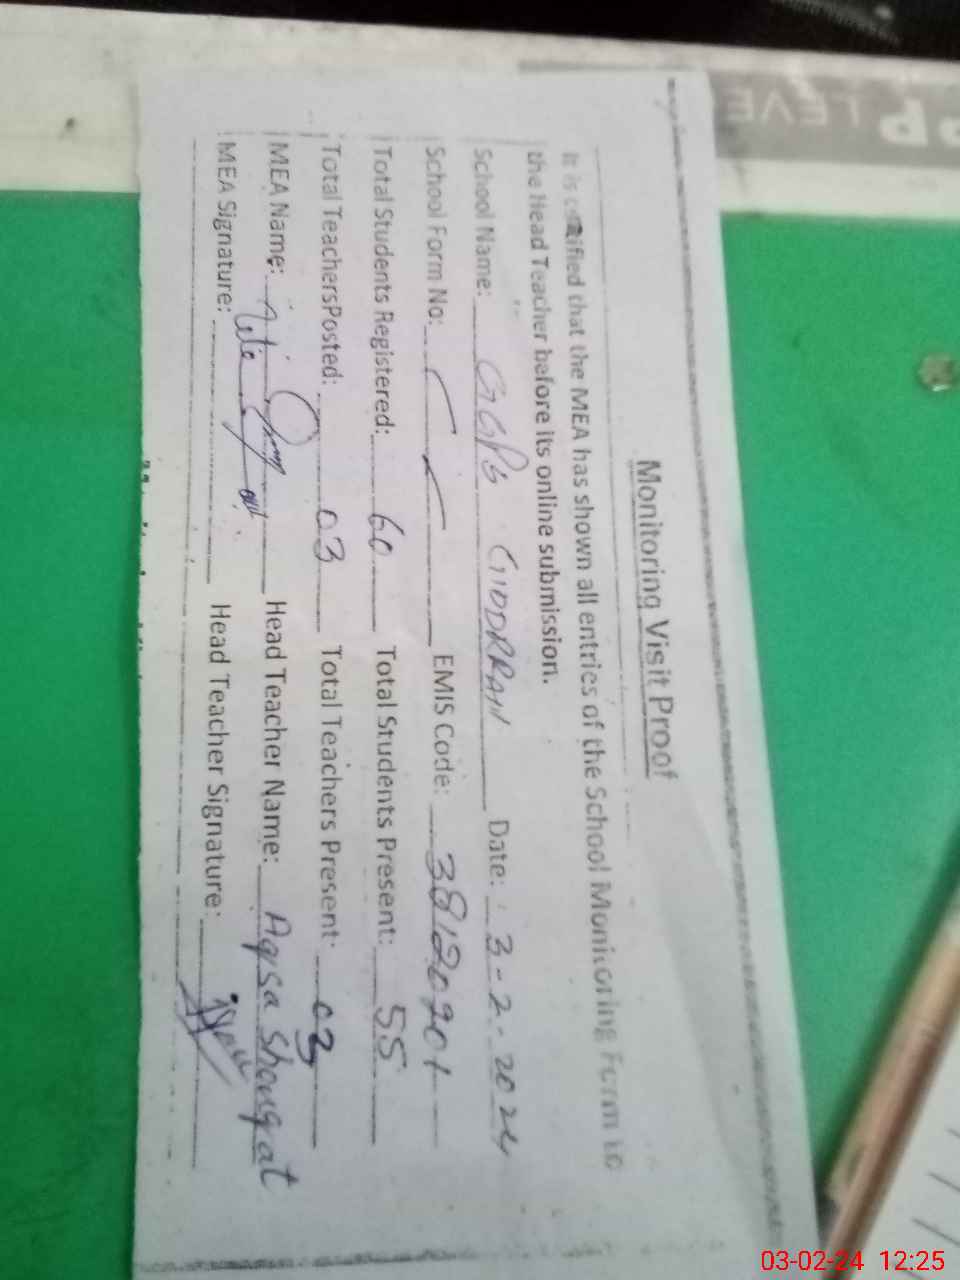 Monitoring Visit Proof
It is certified that the MEA has shown all entries of the School Monitoring Form to
the Head Teacher before its online submission.
School Name: GGPS GIDDRRAN Date: 3-2-2024
School Form No: EMIS Code: 38120201
Total Students Registered: 60 Total Students Present: 55
Total TeachersPosted: 03 Total Teachers Present: 03
MEA Name: Head Teacher Name: Aqsa Shouqat
MEA Signature: Head Teacher Signature:
PP LEVE
03-02-24 12:25